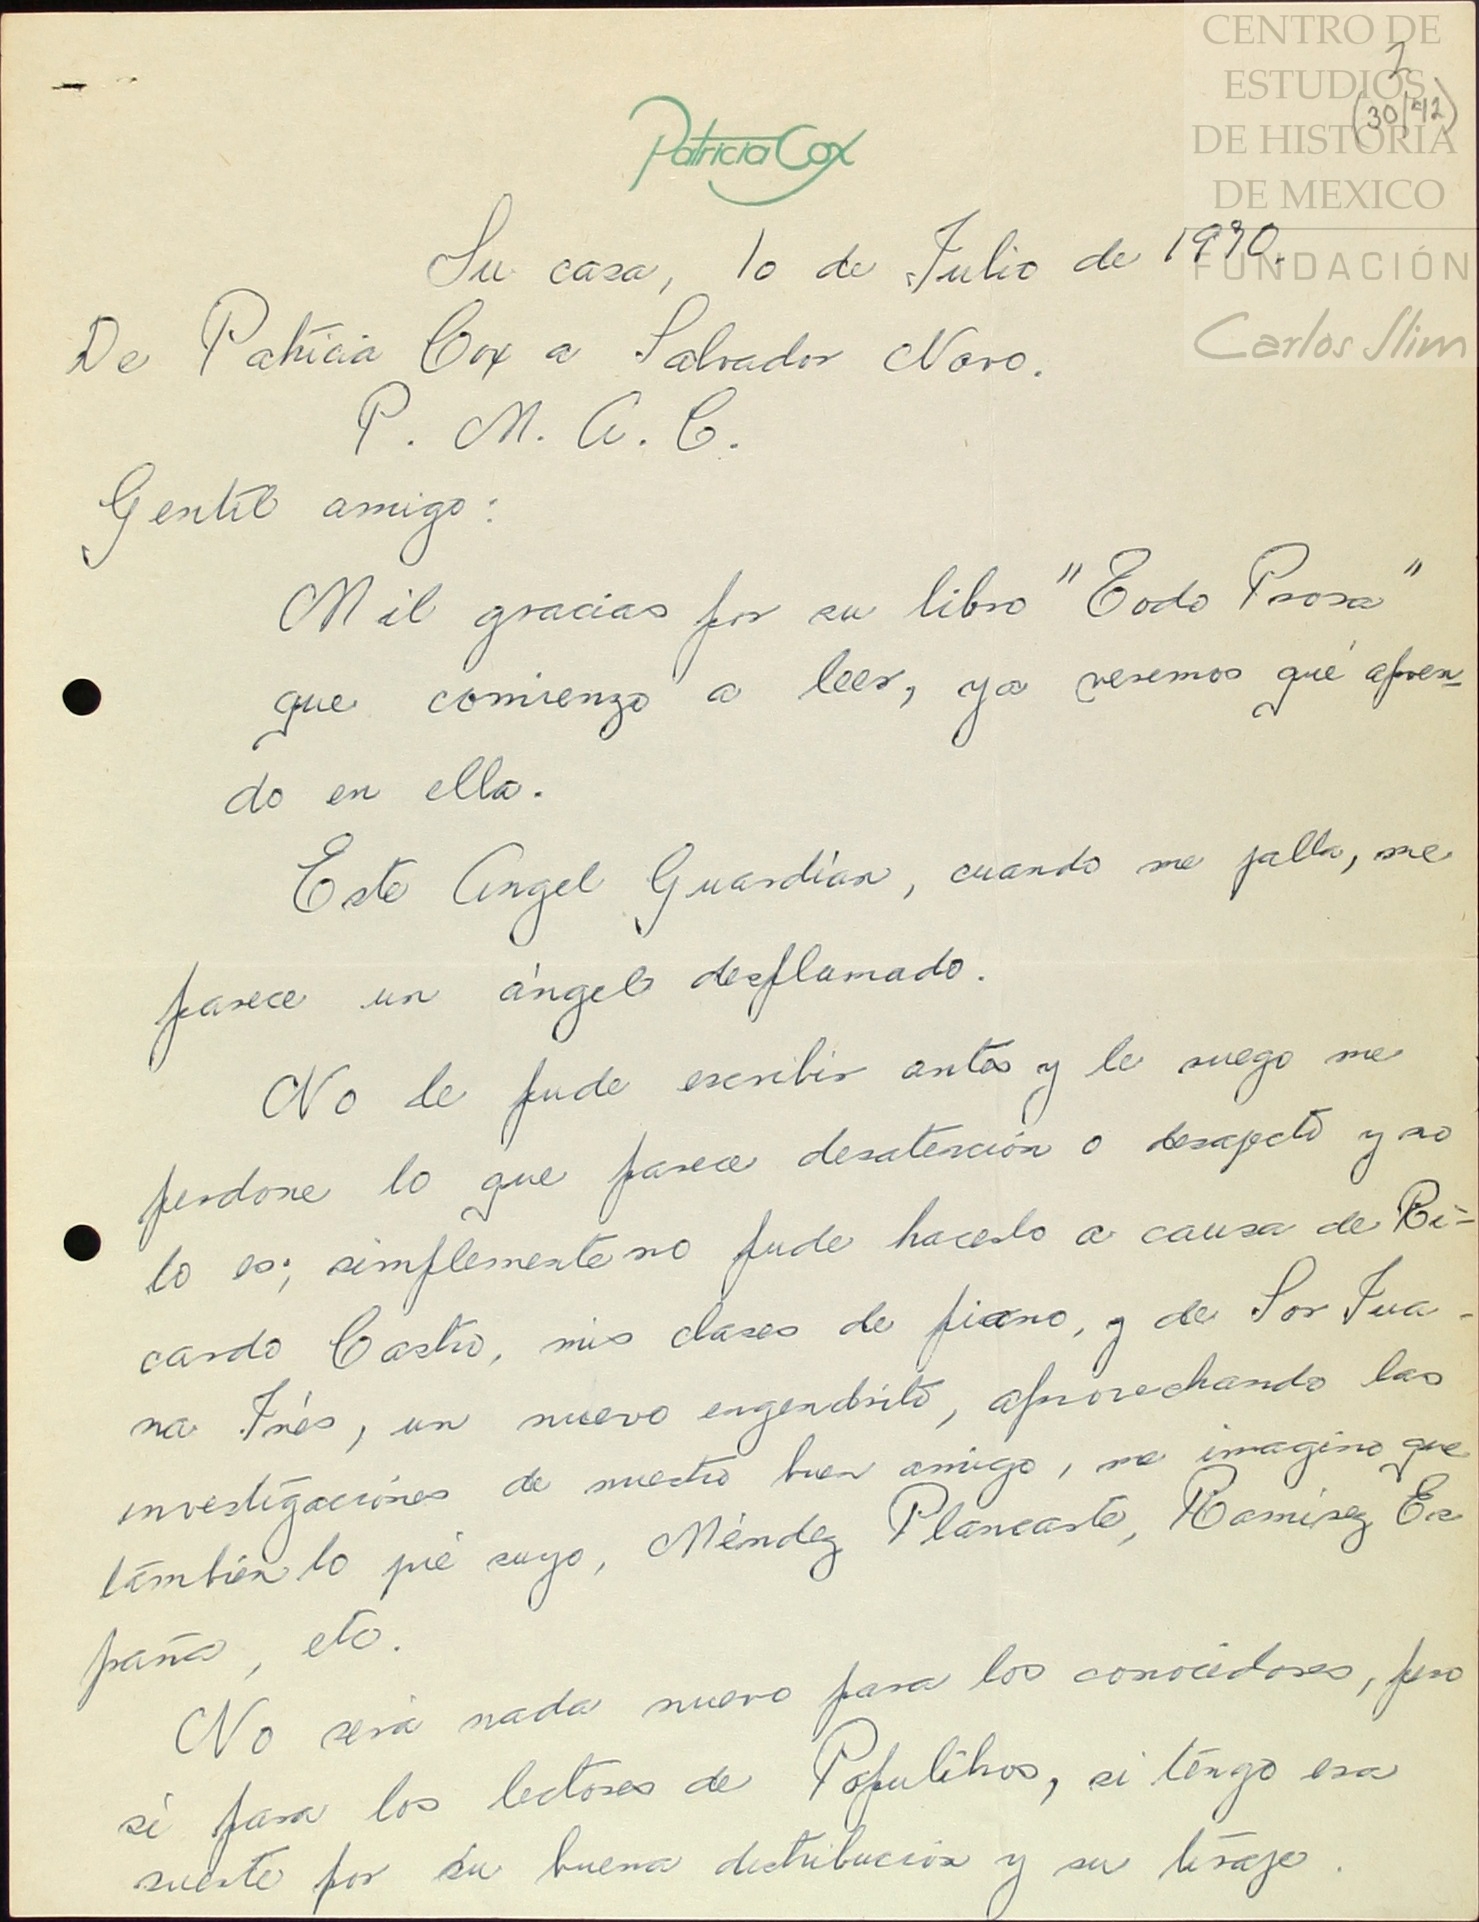 CENTRO DE
ESTUDIOS
DE HISTORIA
DE MEXICO
FUNDACIÓN
Carlos Slim
2
(30/42)
Patricia Cox
Su casa, 1o de Julio de 1970.
De Patricia Cox a Salvador Novo.
P. M. A. C.
Gentil amigo:
Mil gracias por su libro "Todo Prosa"
que comienzo a leer, ya veremos qué apren-
do en ella.
Este Angel Guardián, cuando me falla, me
parece un ángel desplumado.
No le pude escribir antes y le ruego me
perdone lo que parece desatención o desafecto y no
lo es; simplemente no pude hacerlo a causa de Ri-
cardo Castro, mis clases de piano, y de Sor Jua-
na Inés, un nuevo engendrito, aprovechando las
investigaciones de nuestro buen amigo, me imagino que
también lo fué suyo, Méndez Plancarte, Ramírez Es
paña, etc.
No será nada nuevo para los conocedores, pero
sí para los lectores de Populibros, si tengo esa
suerte por su buena distribución y su tiraje.